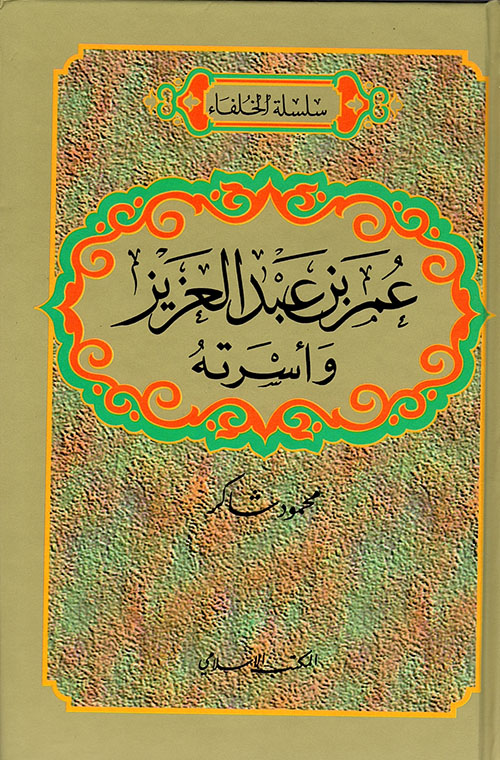 سلسلة الخلفاء
عُمَر بن عَبْد العَزِيز
وَأسْرَتهُ
محمود شاكر
المكتب الإسلامي